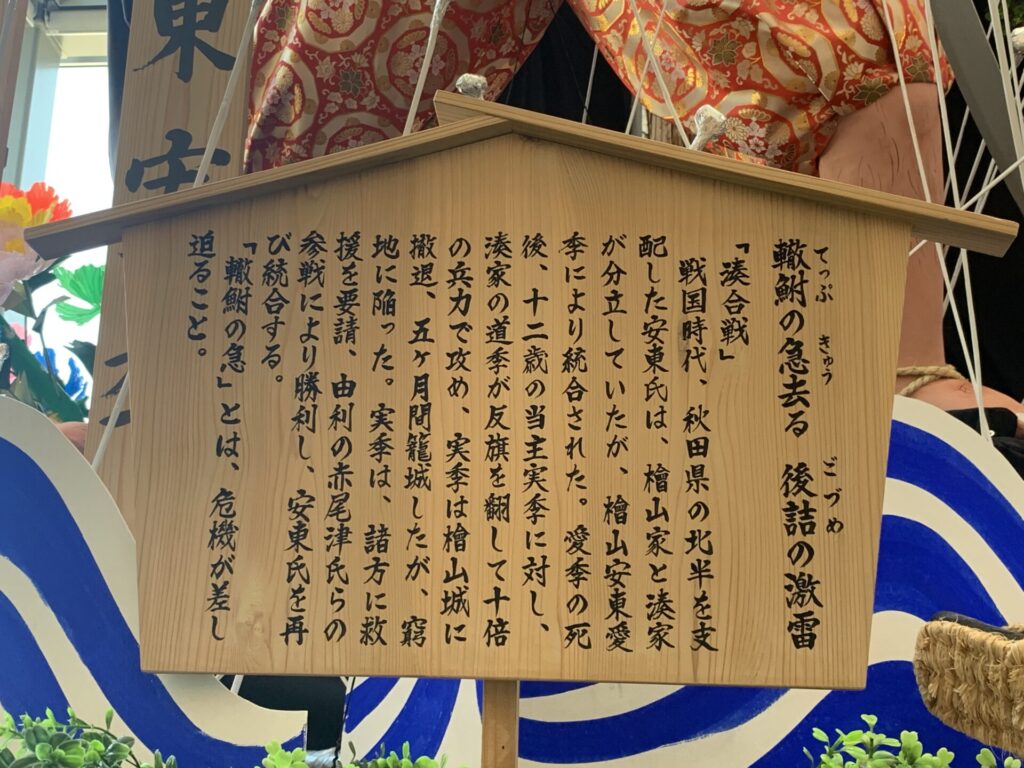 てっぷ きゅう ごづめ
轍鮒の急去る 後詰の激雷
「湊合戦」
戦国時代、秋田県の北半を支
配した安東氏は、檜山家と湊家
が分立していたが、檜山安東愛
季により統合された。愛季の死
後、十二歳の当主実季に対し、
湊家の道季が反旗を翻して十倍
の兵力で攻め、実季は檜山城に
撤退、五ヶ月間籠城したが、窮
地に陥った。実季は、諸方に救
援を要請、由利の赤尾津氏らの
参戦により勝利し、安東氏を再
び統合する。
「轍鮒の急」とは、危機が差し
迫ること。
東